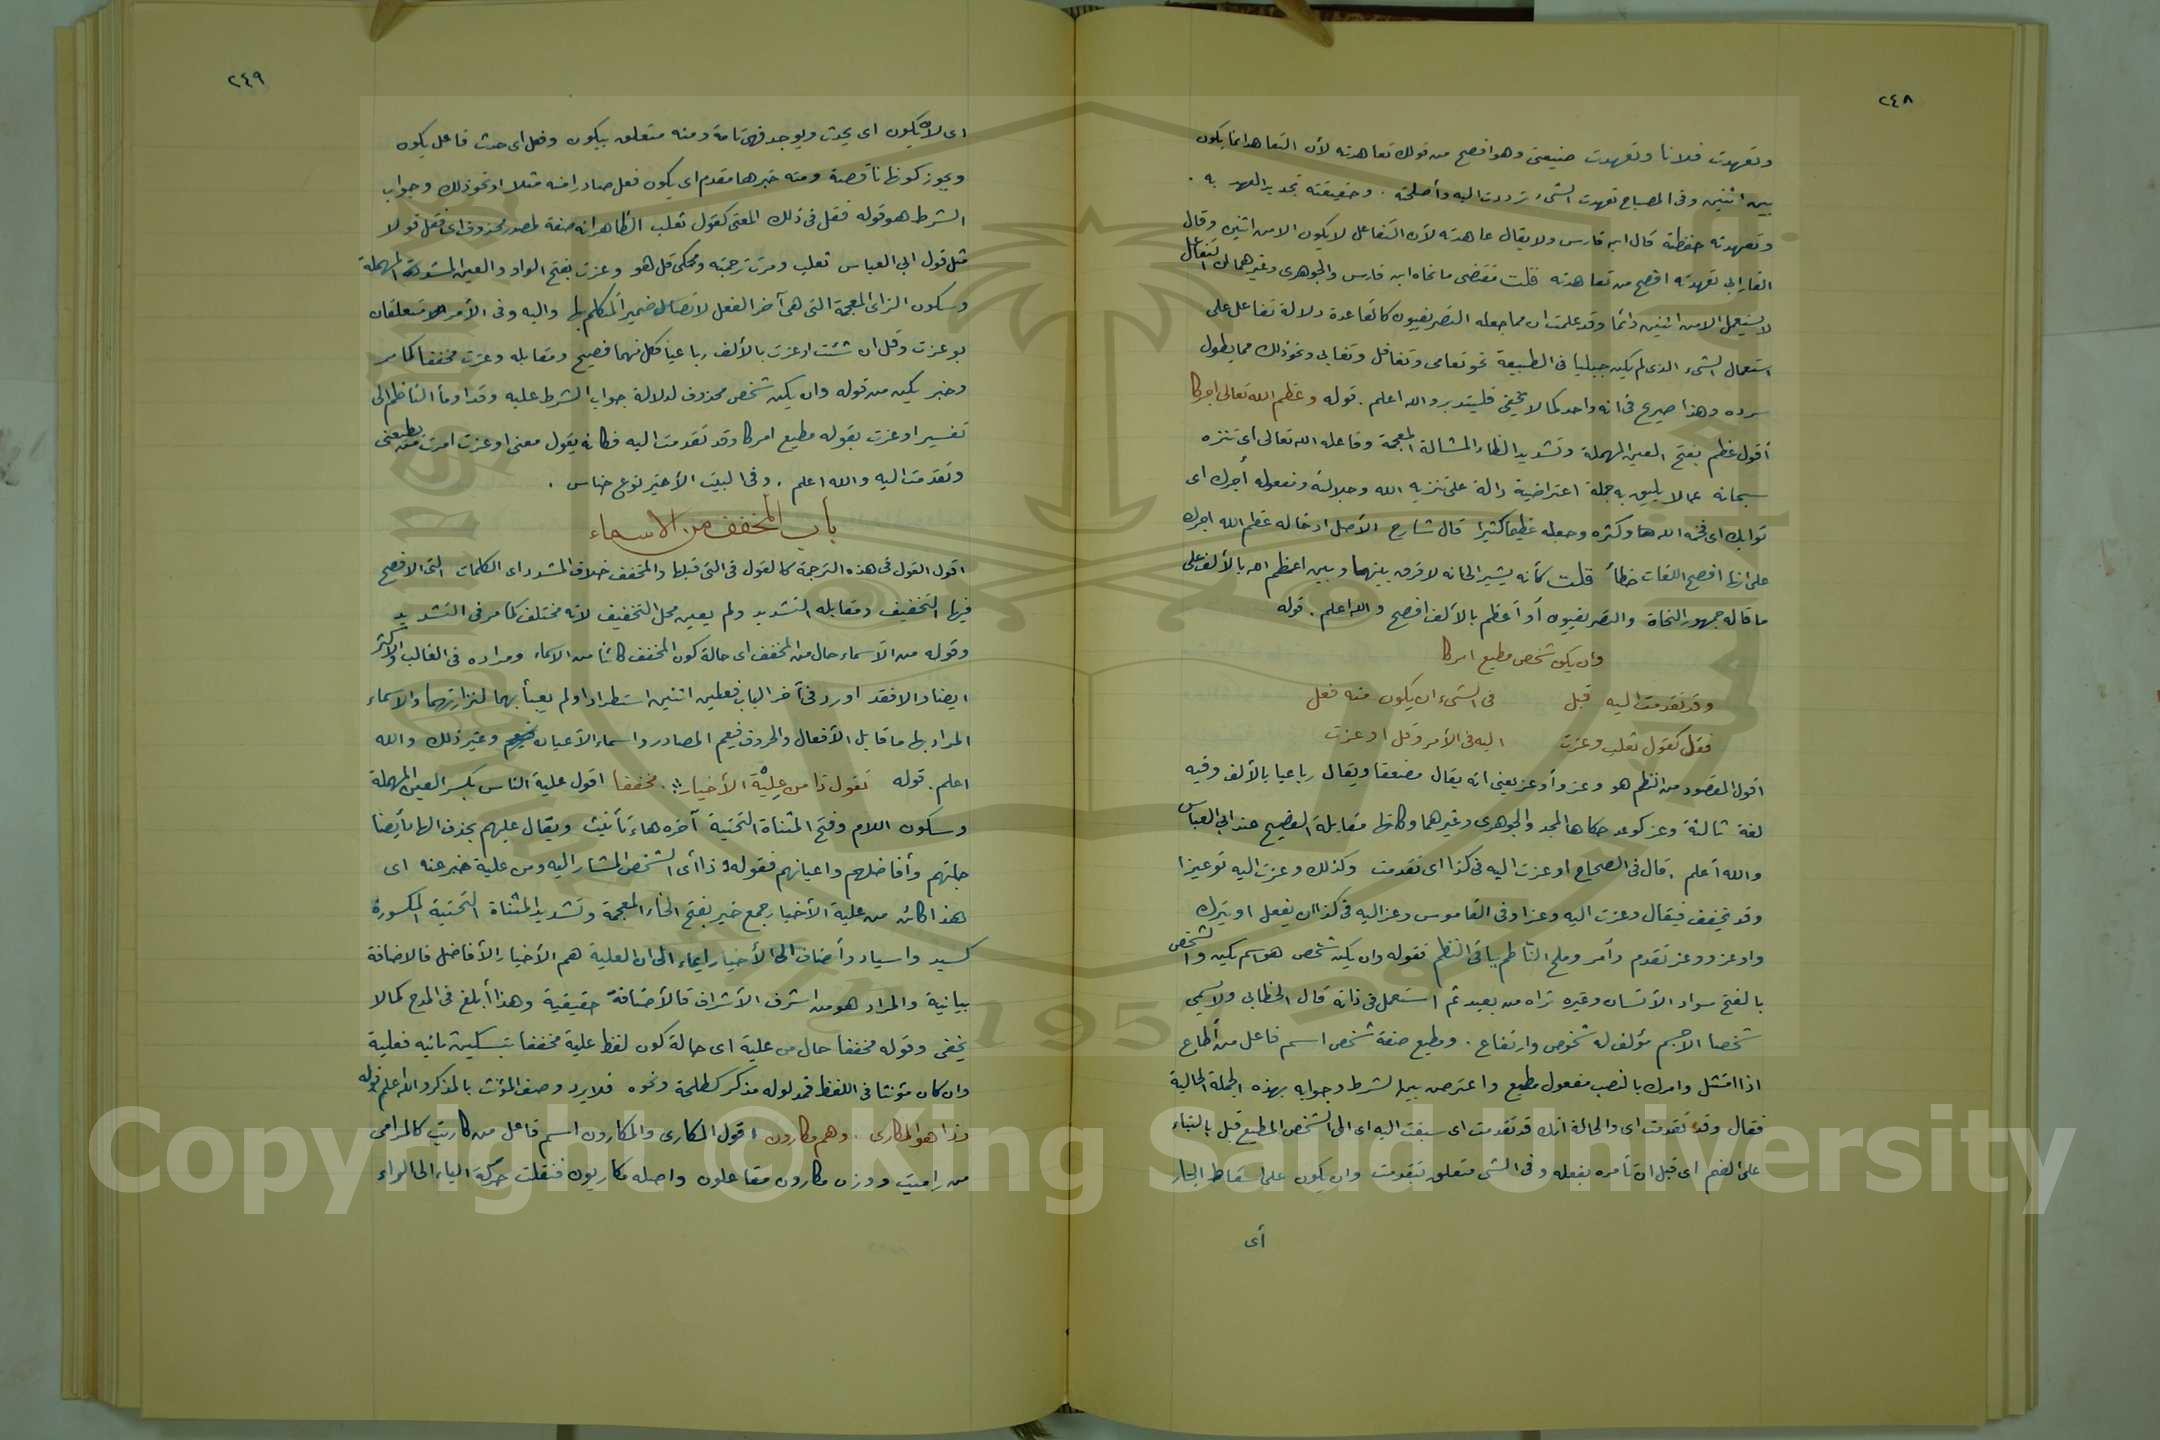 ٢٤٨
وتعهدت فلانا وتعهدت ضيعتى وهو افصح من قولك تعاهدته لأن التعاهد انما يكون
بين اثنين وفى المصباح تعهدت الشىء ترددت اليه وأصلحته . وحقيقته تجديد العهد به .
وتعهدته حفظته قال ابن فارس ولا يقال تعاهدته لأن التفاعل لا يكون الا من اثنين وقال
الفارابى تعهدته افصح من تعاهدته قلت فقضى ما نحاه ابن فارس والجوهرى وغيرهما ان التفاعل
لا يستعمل الا من اثنين دائما وقد علمت ان مما جعله التصريفيون كالقاعدة دلالة تفاعل على
استعمال الشىء الذى لم يكن جبليا فى الطبيعة نحو تعامى وتغافل وتغابى ونحو ذلك مما يطول
سرده وهذا صريح فى انه واحد كما لا يخفى فليتدبر والله اعلم . قوله وعظم الله تعالى اجركا
أقول عظم بفتح العين المهملة وتشديد الظاء المشالة المعجمة وفاعله الله تعالى اى تنزه
سبحانه عما لا يليق به جملة اعتراضية دالة على تنزيه الله وجلالته ومفعوله أجرك اى
ثوابك اى فخمه الله هنا وكثره وجعله عظيما كثيرا قال شارح الأصل ادخاله عظم الله اجرك
على انها افصح اللغات خطأ قلت كأنه يشير الى انه لا فرق بينهما وبين اعظم اهـ بالألف على
ما قاله جمهور النحاة والتصريفيون أو أعظم بالألف افصح والله اعلم . قوله
وان يكن شخص مطيع امركا
وقد تقدمت اليه قبل فى الشىء ان يكون منه فعل
فقل كقول ثعلب وعزت اليه فى الأمر وقل اوعزت
اقول المقصود من النظم هو وعز وأوعز يعنى انه يقال مضعفا ويقال رباعيا بالألف وفيه
لغة ثالثة وعز كوعد حكاها المجد والجوهرى وغيرهما وكانها مقابلة الفصيح عند ابى العباس
والله أعلم . قال فى الصحاح اوعزت اليه فى كذا اى تقدمت وكذلك وعزت اليه توعيزا
وقد يخفف فيقال وعزت اليه وعزا وفى القاموس وعز اليه فى كذا ان يفعل او يترك
واوعز ووعز تقدم وأمر وملح الناظم بباقى النظم فقوله وان يكن شخص هو اسم يكن والشخص
بالفتح سواد الأنسان وغيره تراه من بعيد ثم استعمل فى ذاته قال الخطابى ولا يسمى
شخصا الا جسم مؤلف له شخوص وارتفاع . ومطيع صفة شخص اسم فاعل من أطاع
اذا امتثل وامرك بالنصب مفعول مطيع واعترض بين الشرط وجوابه بهذه الجملة الحالية
فقال وقد تقدمت اى والحالة انك قد تقدمت اى سبقت اليه اى الى الشخص المطيع قبل بالبناء
على الضم اى قبل ان تأمره بفعله وفى الشى متعلق بتقدمت وان يكون على اسقاط الجار
أى
٢٤٩
اى لان يكون اى يحدث ويوجد فهى تامة ومنه متعلق بيكون وفعل اى حدث فاعل يكون
ويجوز كونها ناقصة ومنه خبرها مقدم اى يكون فعل صادرا منه مثلا او نحو ذلك وجواب
الشرط هو قوله فقل فى ذلك المعنى كقول ثعلب الظاهر انه صفة لمصدر محذوف اى فقل قولا
مثل قول ابى العباس ثعلب ومرت ترجمته ومحكى قل هو وعزت بفتح الواو والعين المشددة المهملة
وسكون الزاى المعجمة التى هى آخر الفعل لاتصال ضمير المتكلم بها واليه وفى الأمر متعلقان
بوعزت وقل ان شئت اوعزت بالألف رباعيا فكل منهما فصيح ومقابله وعزت مخففا كما مر
وخبر يكن من قوله وان يكن شخص محذوف لدلالة جواب الشرط عليه وقد اومأ الناظم الى
تفسير اوعزت بقوله مطيع امركا وقد تقدمت اليه فكانه يقول معنى اوعزت امرت من يطيعنى
وتقدمت اليه والله اعلم . وفى البيت الأخير نوع جناس .
باب المخفف من الاسماء
اقول القول فى هذه الترجمة كالقول فى التى قبلها والمخفف خلاف المشدد اى الكلمات التى الافصح
فيها التخفيف ومقابله التشديد ولم يعين محل التخفيف لانه مختلف كما مر فى التشديد
وقوله من الاسماء حال من المخفف اى حالة كون المخفف كائنا من الاسماء ومراده فى الغالب والاكثر
ايضا والا فقد اورد فى آخر الباب فعلين اثنين استطرادا ولم يعبأ بهما لنزارتهما والاسماء
المراد بها ما قابل الأفعال والحروف فيعم المصادر واسماء الأعيان وغير ذلك والله
اعلم . قوله تقول ذا من عِلْيَة الأخيار . مخففا اقول علية الناس بكسر العين المهملة
وسكون اللام وفتح المثناة التحتية آخره هاء تأنيث ويقال عليهم بحذف الهاء أيضا
جلتهم وأفاضلهم واعيانهم فقوله ذا أى الشخص المشار اليه ومن علية خبر عنه اى
هذا كائن من علية الأخيار جمع خير بفتح الخاء المعجمة وتشديد المثناة التحتية المكسورة
كسيد واسياد وأضاف الى الأخيار ايماء الى ان العلية هم الأخيار الأفاضل فالاضافة
بيانية والمراد هو من اشرف الأشراف فالأضافة حقيقية وهذا أبلغ فى المدح كما لا
يخفى وقوله مخففا حال من علية اى حالة كون لفظ علية مخففا بتسكين ثانيه فعلية
وان كان مؤنثا فى اللفظ فمدلوله مذكر كطلحة ونحوه فلا يرد وصف المؤنث بالمذكر والله اعلم قوله
وذا هو المكارى . وهم مكارون اقول المكارى والمكارون اسم فاعل من كاريت كالمرامى
من راميت ووزن مكارون مفاعلون واصله مكاريون فنقلت حركة الياء الى الراء
Copyright © King Saud University
1957